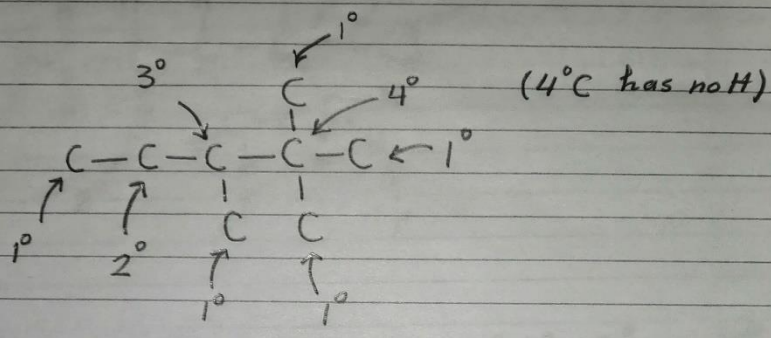 1°
3° C 4° (4°C has no H)
C – C – C – C – C ← 1°
C C
1° 2°
1° 1°